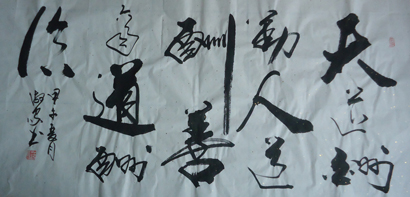 天道酬
勤人道
酬善
商道酬
信
甲午夏月